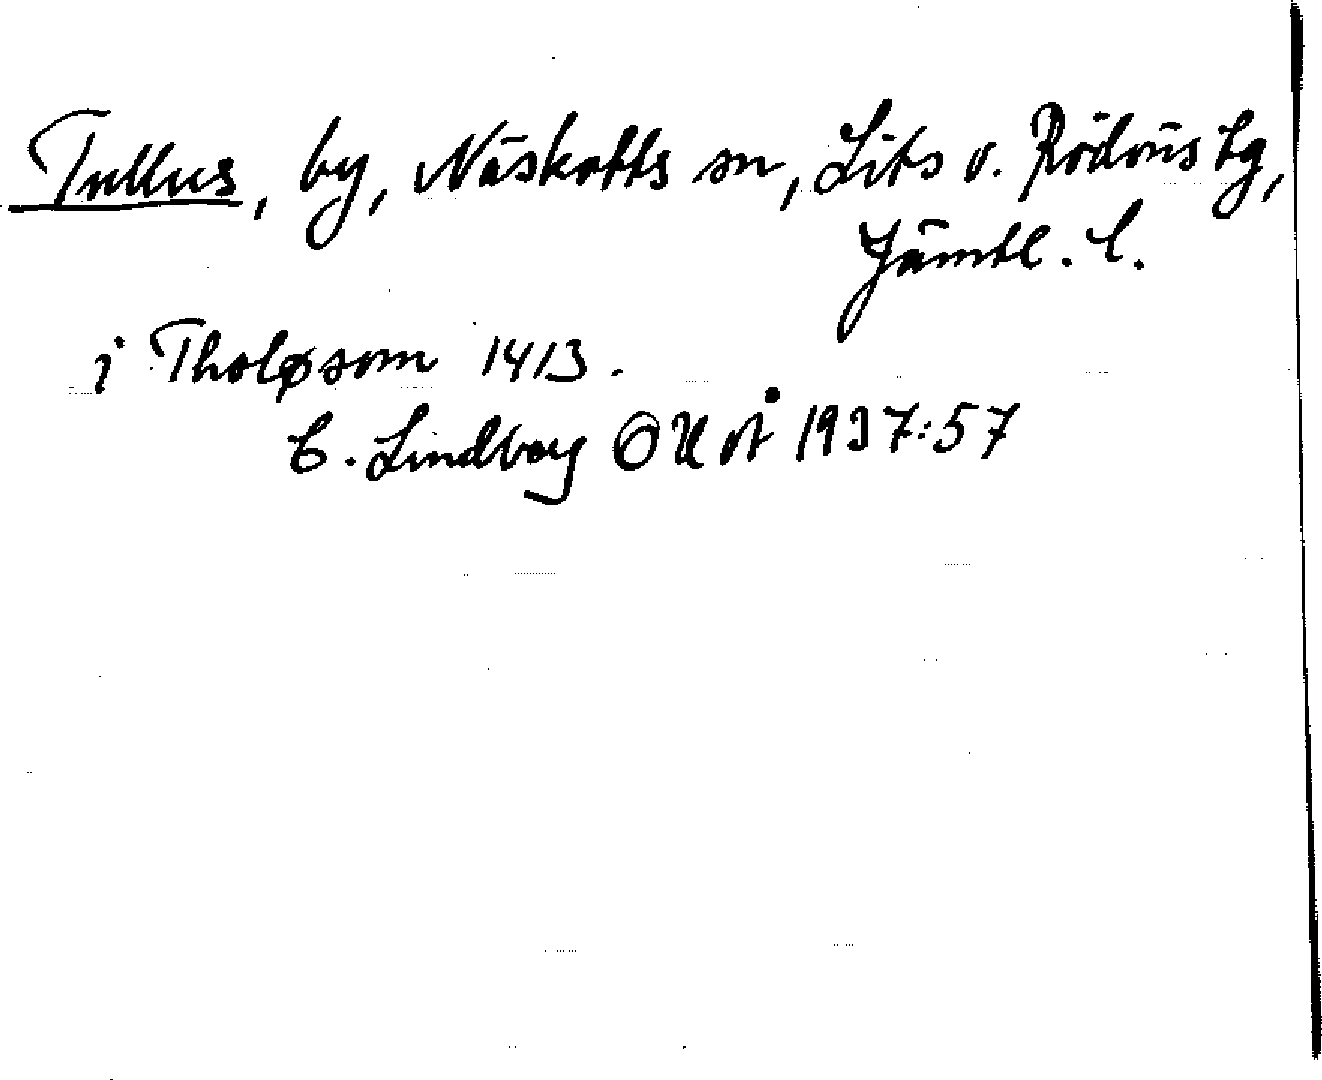 Tullus, by, Näskotts sn, Lits o. Rödöns tg,
Jämtl. l.
i Tholøsom 1413.
C. Lindberg OUoÅ 1937:57